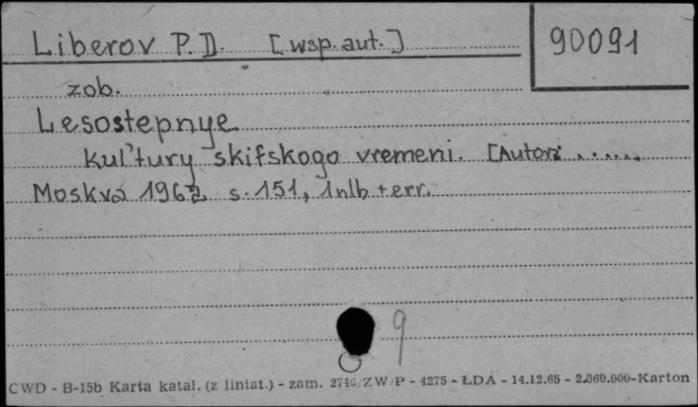 Liberov P.D. [wsp. aut.] 90091
zob.
Lesostepnye
kul'tury skifskogo vremeni. [Autorzy ......
Moskva 1962 s. 151, 1nlb + err.
9
CWD - B-15b Karta katal. (z liniat.) - zam. 2746/ZW/P - 4275 - ŁDA - 14.12.65 - 2.360.000-Karton